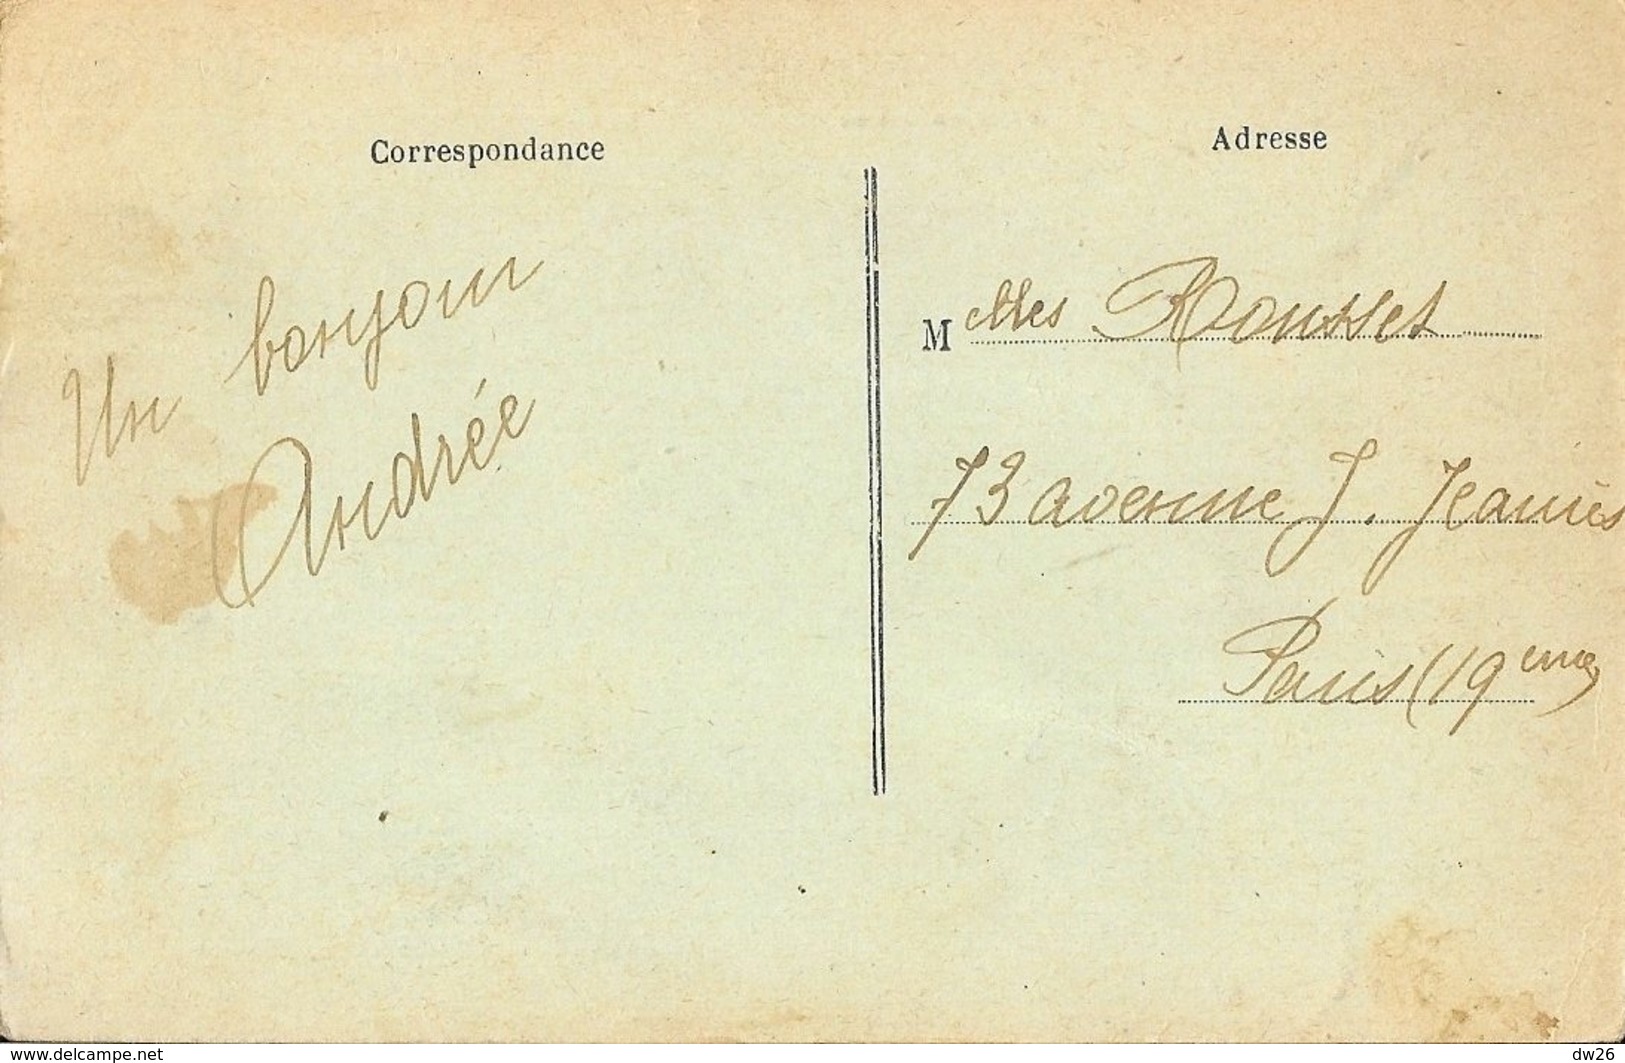 Correspondance
Un bonjour
Andrée
Adresse
Melles Rousset
73 avenue J. Jaurès
Paris (19eme)
www.delcampe.net
dw26